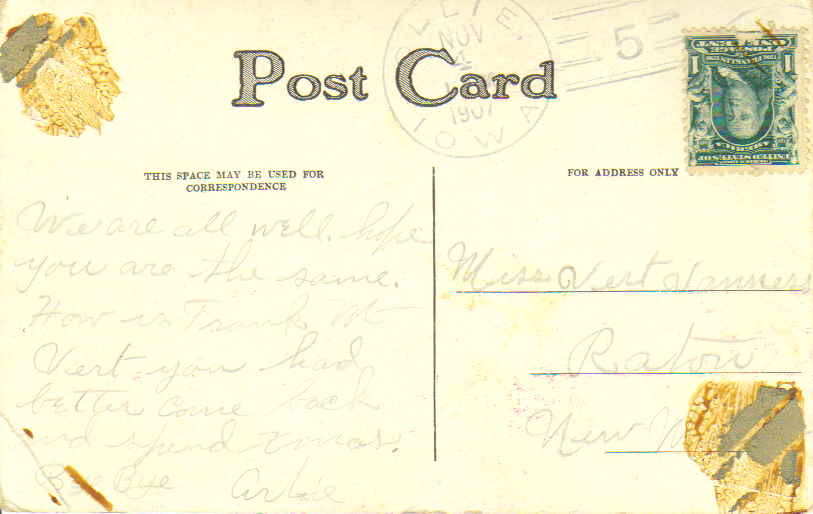 Post Card
NOV
1907
IOWA
5
THIS SPACE MAY BE USED FOR
CORRESPONDENCE
FOR ADDRESS ONLY
We are all well. hope
you are the same.
How is Frank
Vert you had
better come back
and spend xmas.
Bye Bye
Miss Vert
Raton
New